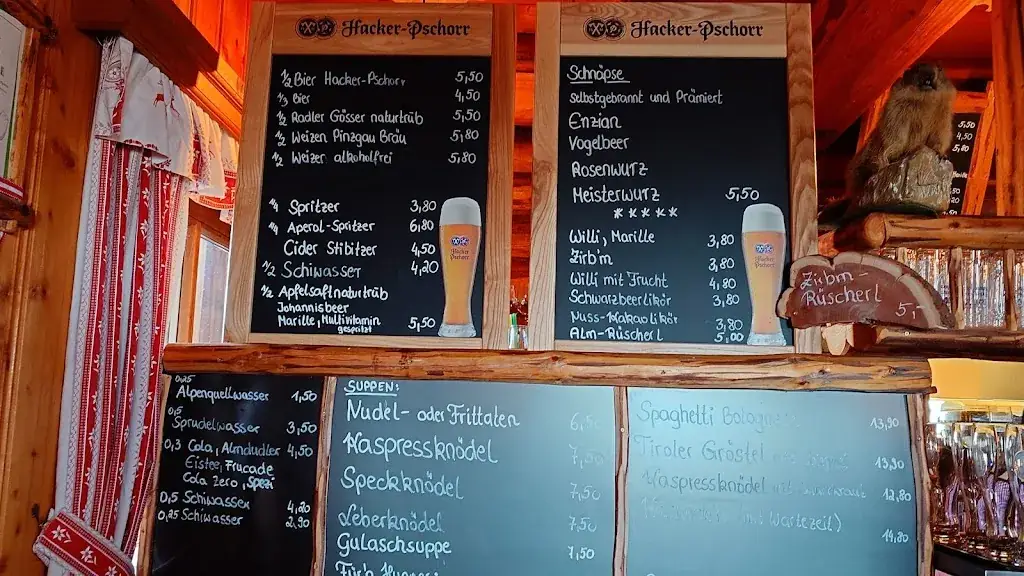 Hacker-Pschorr
1/2 Bier Hacker-Pschorr 5,50
1/3 Bier 4,50
1/2 Radler Gösser naturtrüb 5,50
1/2 Weizen Pinzgau Bräu 5,80
1/2 Weizen alkoholfrei 5,80
1/4 Spritzer 3,80
1/4 Aperol-Spritzer 6,80
Cider Stibitzer 4,50
1/2 Schiwasser 4,20
1/2 Apfelsaft naturtrüb
Johannisbeer
Marille, Multivitamin 5,50
gespritzt
Hacker-Pschorr
Hacker-Pschorr
Schnäpse
selbstgebrannt und Prämiert
Enzian
Vogelbeer
Rosenwurz
Meisterwurz 5,50
*****
Willi, Marille 3,80
Zirb'm 3,80
Willi mit Frucht 4,80
Schwarzbeerlikör 3,80
Nuss-Kakaolikör 3,80
Alm-Rüscherl 5,00
Hacker-Pschorr
5,50
4,50
5,80
Zirbm-
Rüscherl 5,-
0,25
Alpenquellwasser 1,50
0,5
Sprudelwasser 3,50
0,3 Cola, Almdudler 4,50
Eistee, Frucade
Cola Zero, Spezi
0,5 Schiwasser 4,20
0,25 Schiwasser 2,90
SUPPEN:
Nudel- oder Frittaten
Kaspressknödel
Speckknödel 7,50
Leberknödel 7,50
Gulaschsuppe 7,50
Spaghetti Bolognese 13,90
Tiroler Gröstel 13,90
Kaspressknödel 12,80
mit Wartezeit) 14,80